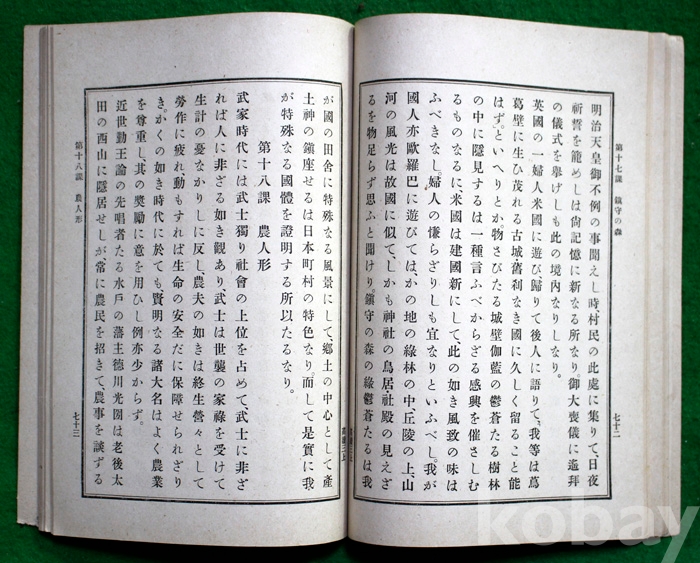 第十七課 鎮守の森
七十二
明治天皇御不例の事聞えし時村民の此處に集りて、日夜
祈誓を籠めしは尙記憶に新なる所なり。御大喪儀に遙拜
の儀式を擧げしも此の境內なりしなり。
英國の一婦人米國に遊び歸りて後人に語りて、「我等は蔦
葛壁に生ひ茂れる古城舊刹なき國に久しく留ること能
はず。」といへりとか。物さびたる城壁伽藍の鬱蒼たる樹林
の中に隱見するは一種言ふべからざる感興を催さしむ
るものなるに、米國は建國新にして、此の如き風致の味は
ふべきなし。婦人の慊らざりしも宜なりといふべし。我が
國人亦歐羅巴に遊びては、かの地の綠林の中、丘陵の上、山
河の風光は故國に似て、しかも神社の鳥居・社殿の見えざ
るを物足らず思ふと聞けり。鎮守の森の綠鬱蒼たるは我
が國の田舍に特殊なる風景にして、鄕土の中心として產
土神の鎮座せるは日本町村の特色なり。而して是實に我
が特殊なる國體を證明する所以たるなり。
第十八課 農人形
武家時代には武士獨り社會の上位を占めて、武士に非ざ
れば人に非ざる如き觀あり、武士は世襲の家祿を受けて
生計の憂なかりしに反し、農夫の如きは終生營々として
勞作に疲れ、動もすれば生命の安全だに保障せられざり
き。かくの如き時代に於ても賢明なる諸大名はよく農業
を尊重し、其の奬勵に意を用ひし例亦少からず。
近世勤王論の先唱者たる水戶の藩主德川光圀は老後太
田の西山に隱居せしが、常に農民を招きて、農事を談ずる
第十八課 農人形
七十三
kobay